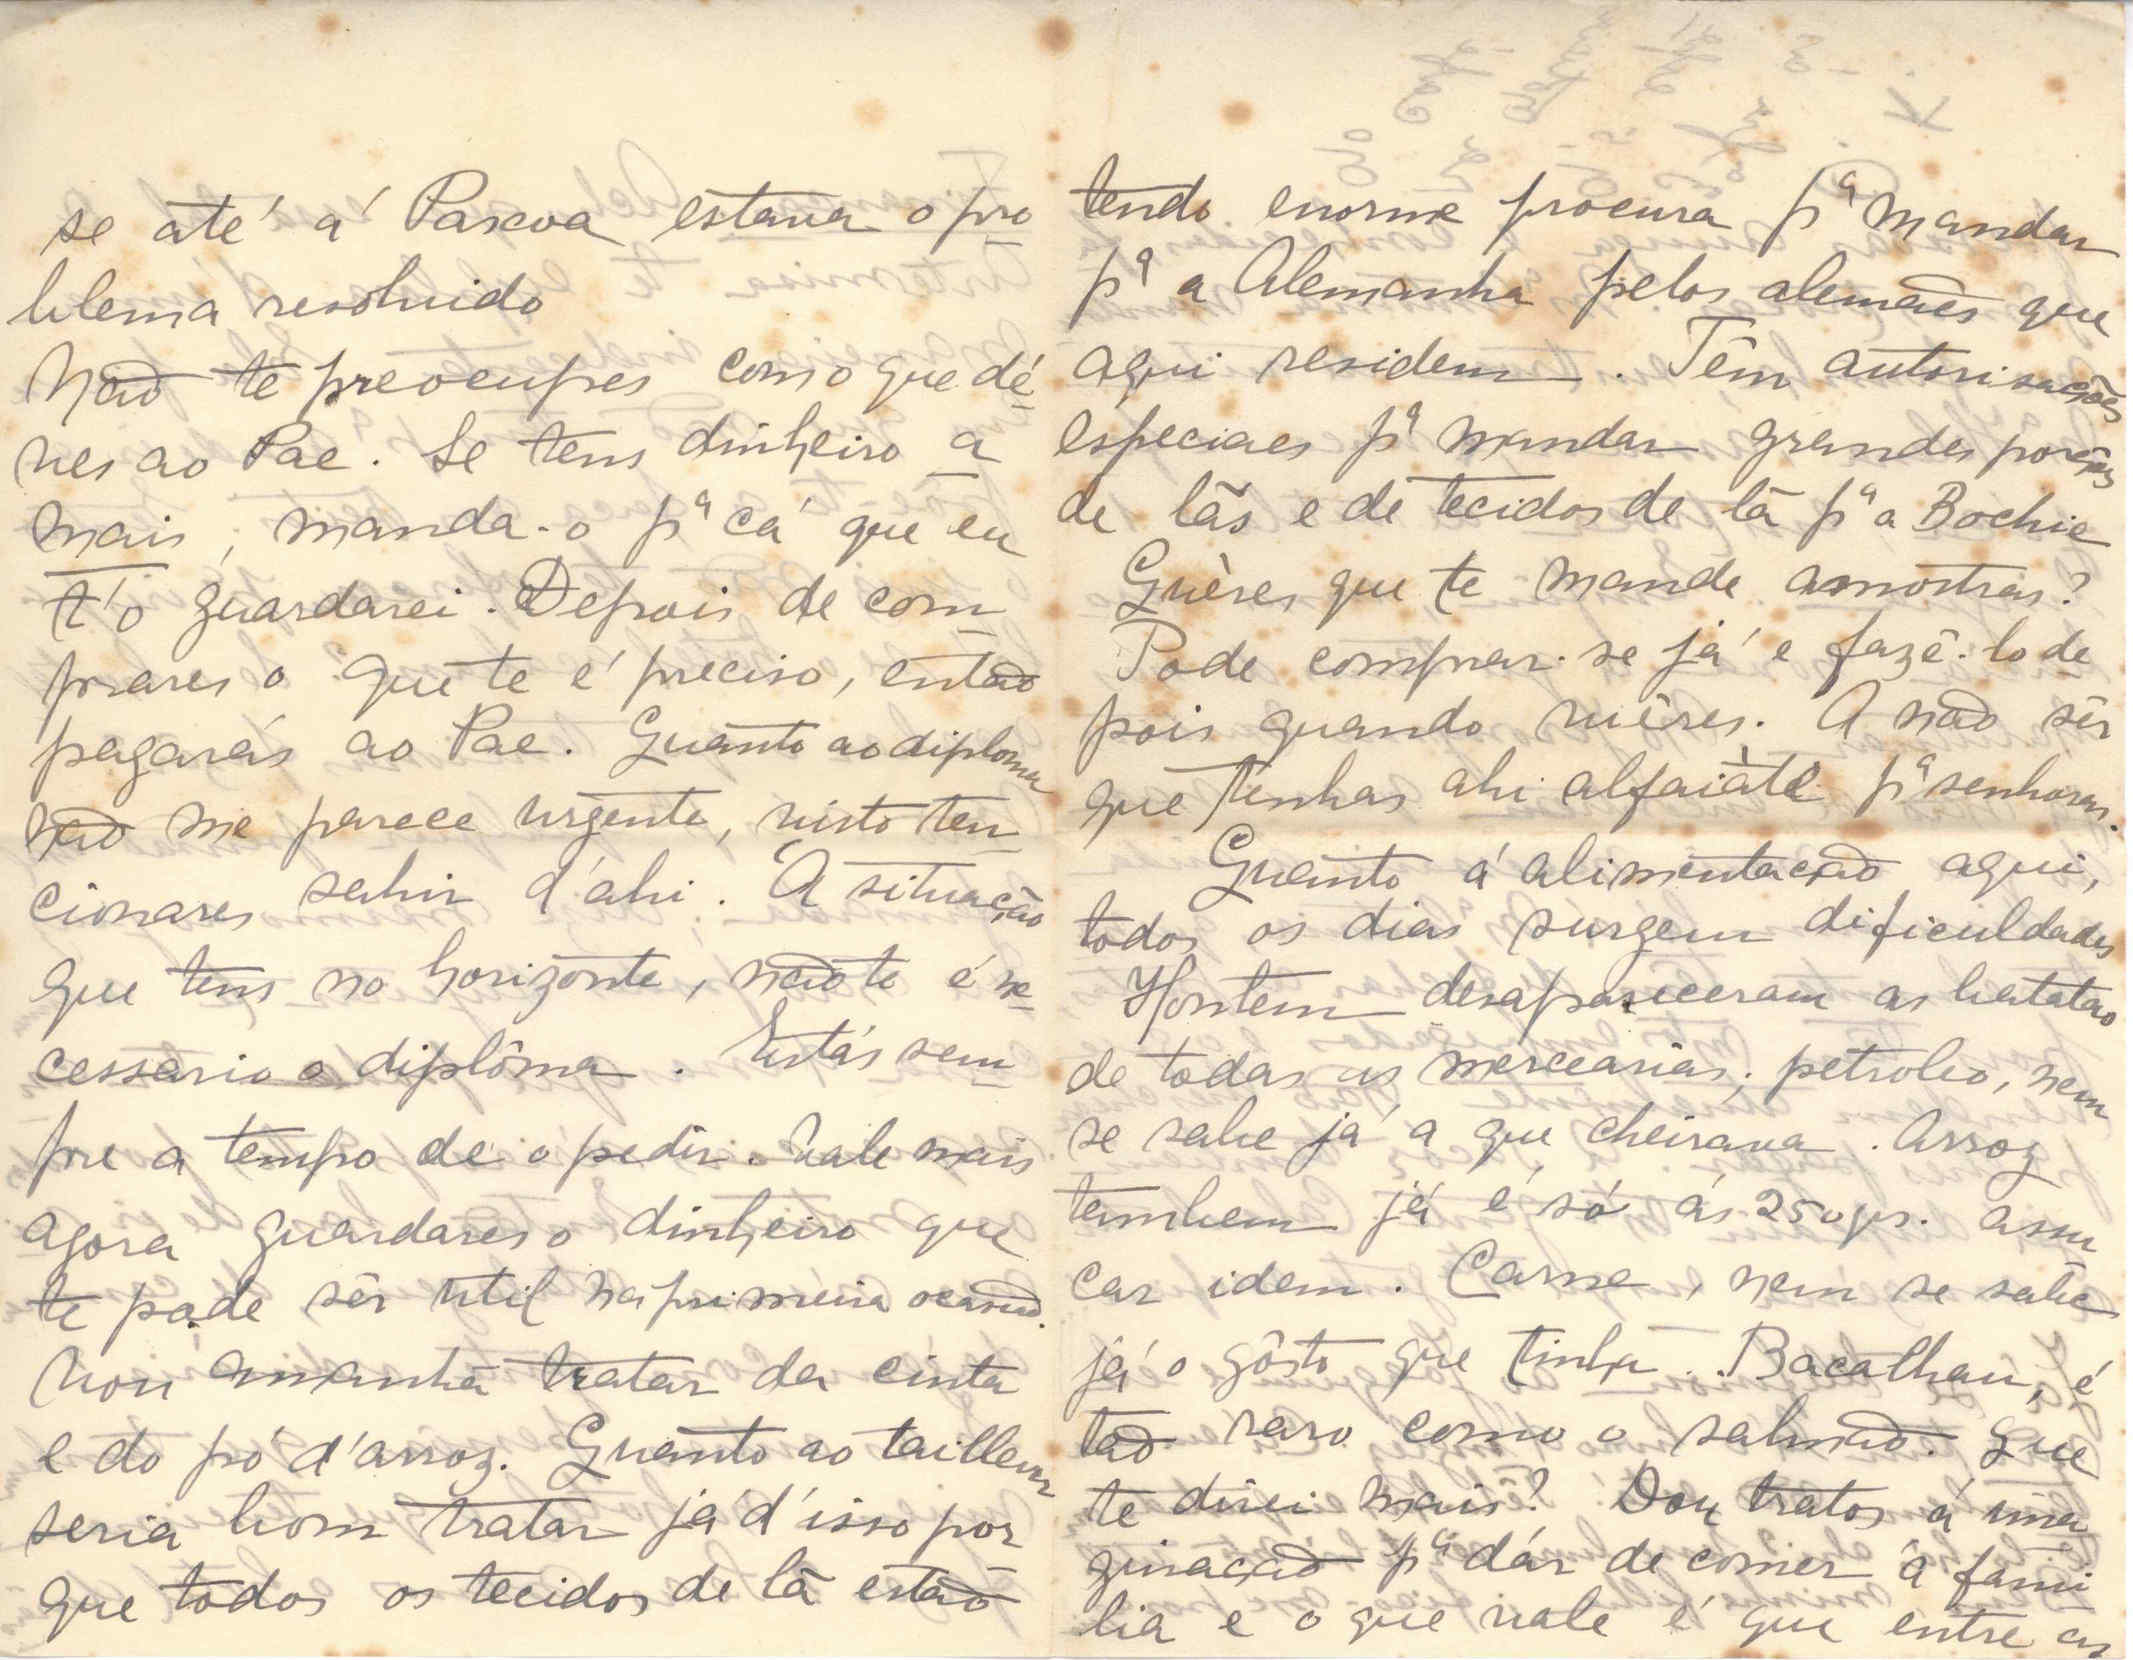 se até á Pascoa estava o pro
blema resolvido
Não te preocupes com o que dé
ves ao Pae. Se tens dinheiro a
mais, manda-o pª cá que eu
t'o guardarei. Depois de com
prares o que te é preciso, então
pagarás ao Pae. Quanto ao diploma
não me parece urgente, visto ten
cionares sahir d'ahi. A situação
que tens no horizonte, não te é ne
cessario o diplôma. Estás sem
pre a tempo de o pedir. Vale mais
agora guardares o dinheiro que
te pode sêr util na primeira ocasião.
Vou amanhã tratar da cinta
e do pó d'arroz. Quanto ao tailleur
seria bom tratar já d'isso por
que todos os tecidos de lã estão
tendo enorme procura pª mandar
pª a Alemanha pelos alemães que
aqui residem. Têm autorisações
especiaes pª mandar grandes porções
de lãs e de tecidos de lã pª a Bochie
Quères que te mande amostras?
Pode comprar-se já e fazê-lo de
pois quando viéres. A não sêr
que tenhas ahi alfaiàte pª senhoras.
Quanto á alimentação aqui,
todos os dias surgem dificuldades
Hontem desapareceram as batatas
de todas as mercearias; petroleo, nem
se sabe já a que cheirava. Arroz
tambem já é só ás 250 grs. assu
car idem. Carne, nem se sabe
já o gôsto que tinha. Bacalhau, é
tão raro como o salmão. Que
te direi mais? Dou tratos á ima
ginação pª dár de comer á fami
lia e o que vale é que entre as